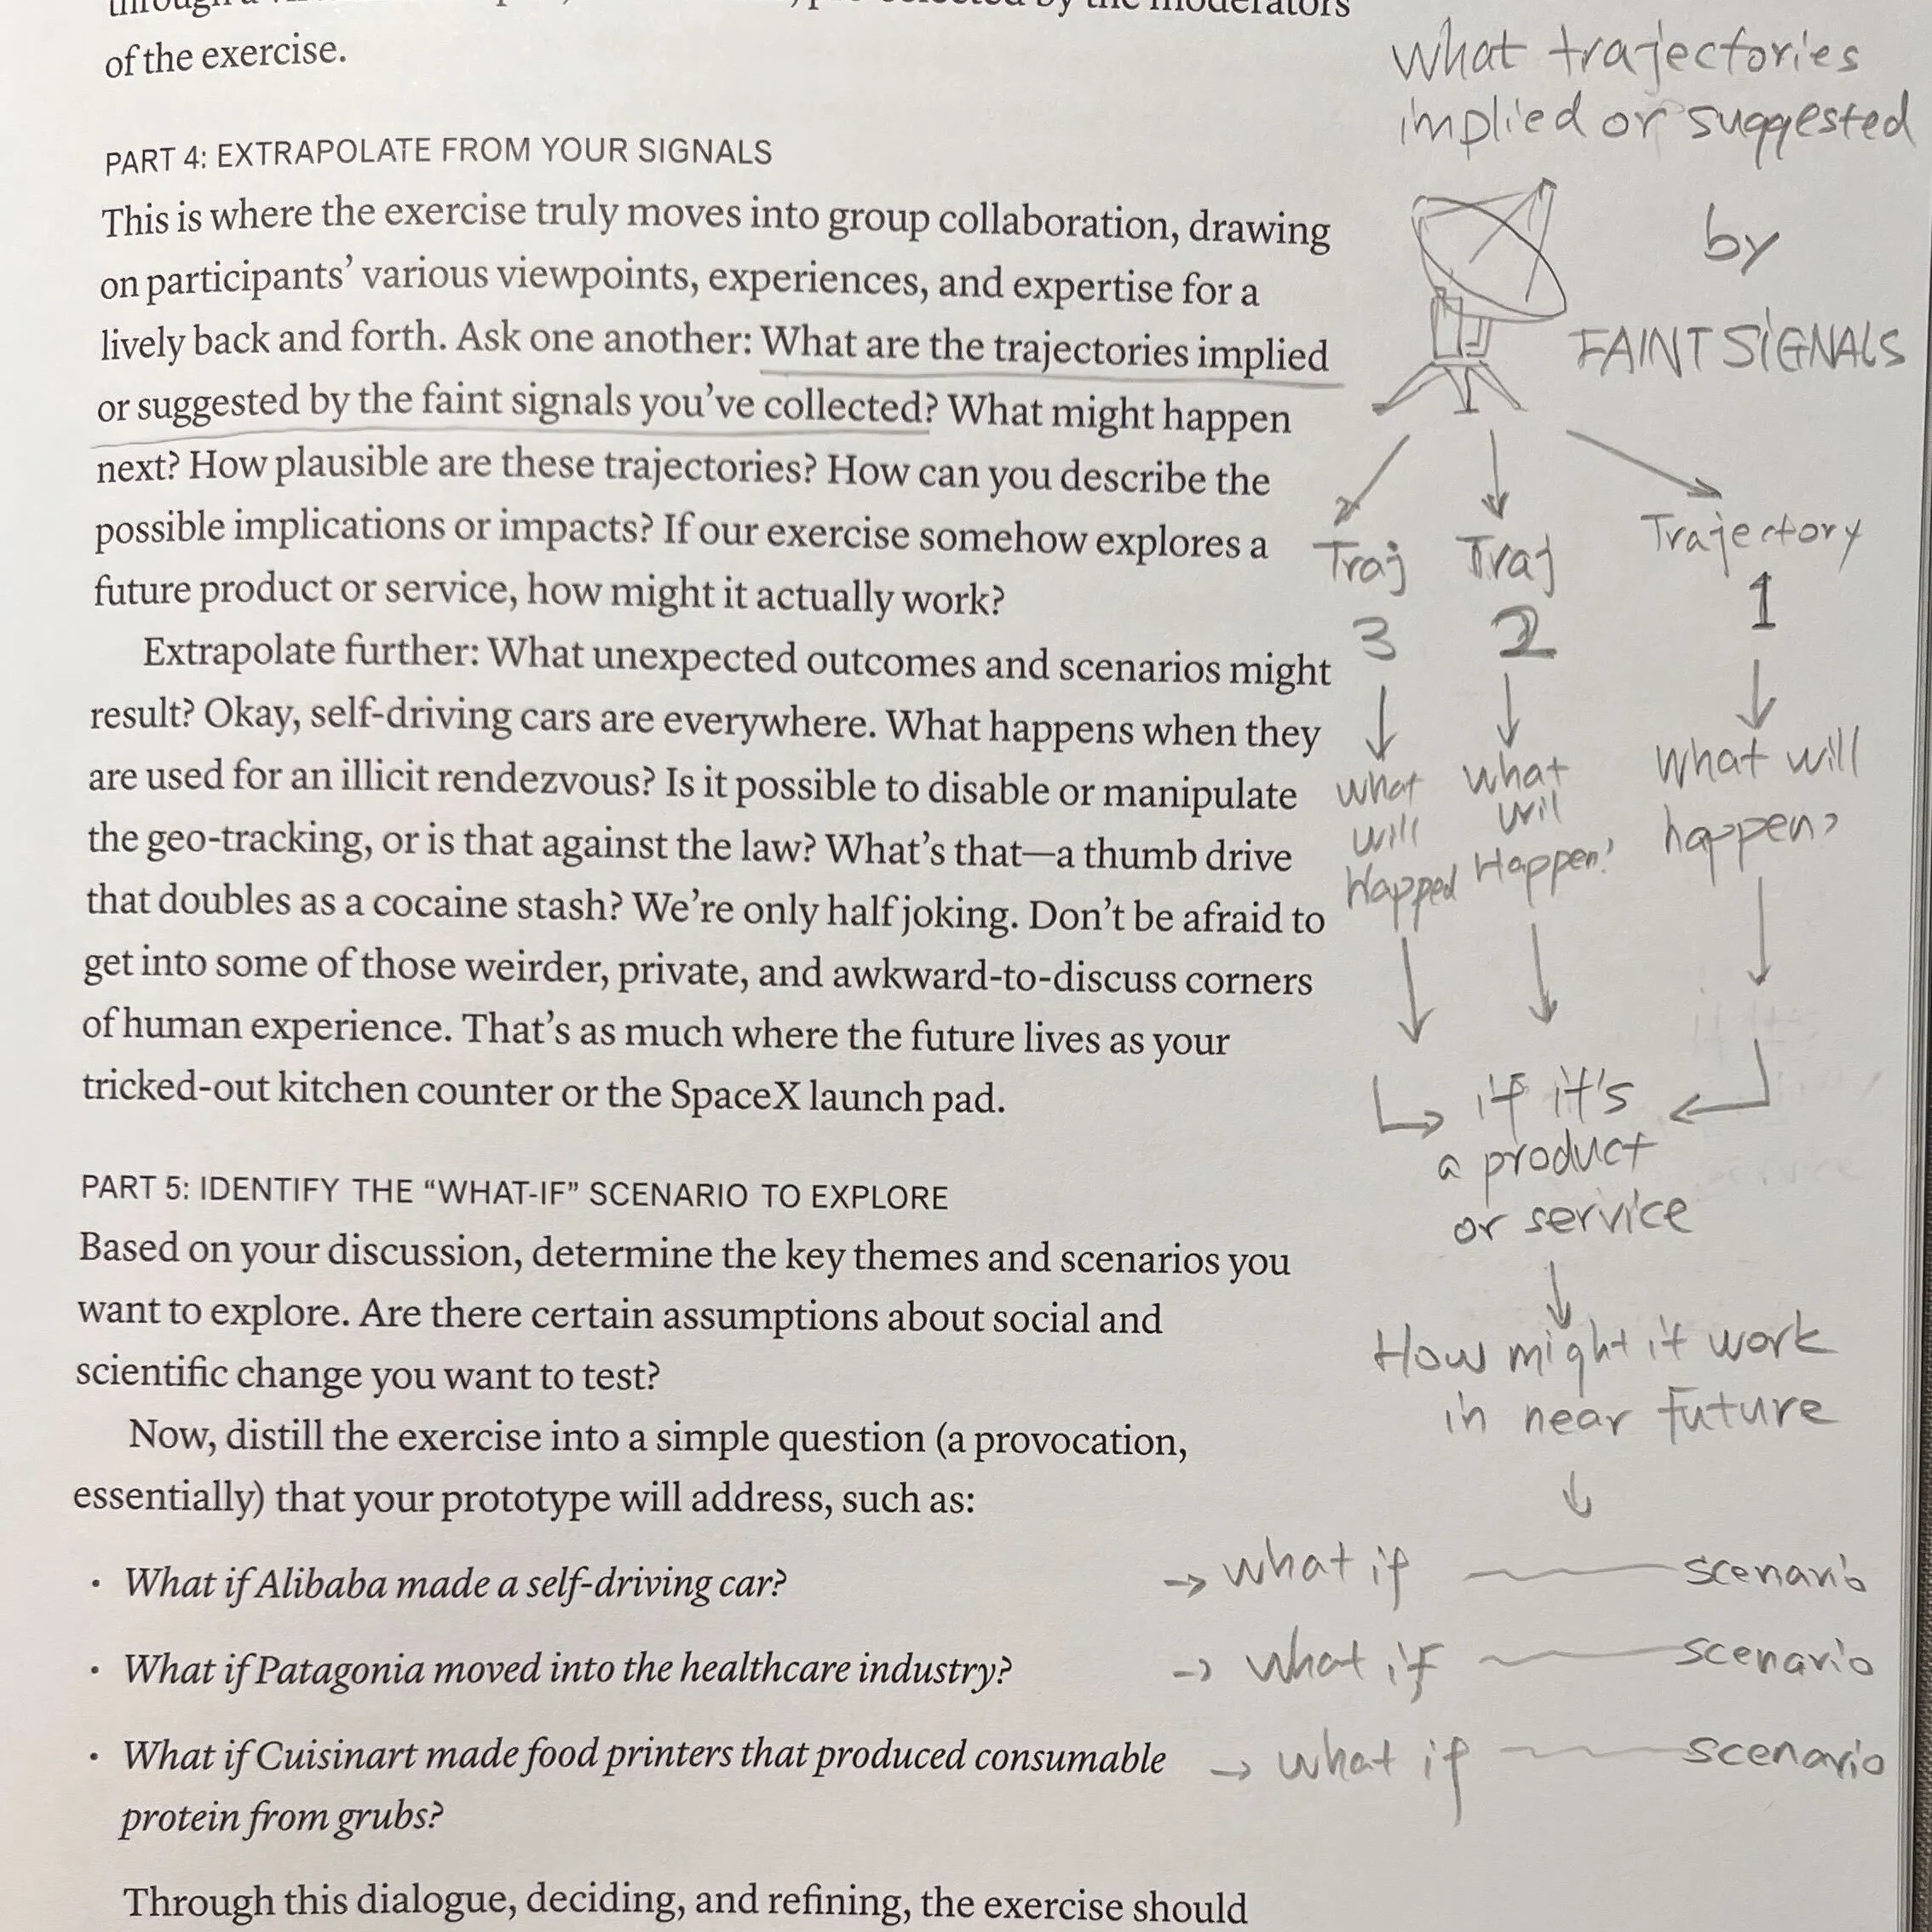 of the exercise.
PART 4: EXTRAPOLATE FROM YOUR SIGNALS
This is where the exercise truly moves into group collaboration, drawing
on participants’ various viewpoints, experiences, and expertise for a
lively back and forth. Ask one another: What are the trajectories implied
or suggested by the faint signals you’ve collected? What might happen
next? How plausible are these trajectories? How can you describe the
possible implications or impacts? If our exercise somehow explores a
future product or service, how might it actually work?
Extrapolate further: What unexpected outcomes and scenarios might
result? Okay, self-driving cars are everywhere. What happens when they
are used for an illicit rendezvous? Is it possible to disable or manipulate
the geo-tracking, or is that against the law? What’s that—a thumb drive
that doubles as a cocaine stash? We’re only half joking. Don’t be afraid to
get into some of those weirder, private, and awkward-to-discuss corners
of human experience. That’s as much where the future lives as your
tricked-out kitchen counter or the SpaceX launch pad.
PART 5: IDENTIFY THE “WHAT-IF” SCENARIO TO EXPLORE
Based on your discussion, determine the key themes and scenarios you
want to explore. Are there certain assumptions about social and
scientific change you want to test?
Now, distill the exercise into a simple question (a provocation,
essentially) that your prototype will address, such as:
• What if Alibaba made a self-driving car?
• What if Patagonia moved into the healthcare industry?
• What if Cuisinart made food printers that produced consumable
protein from grubs?
Through this dialogue, deciding, and refining, the exercise should
What trajectories
implied or suggested
by
FAINT SIGNALS
Traj
3
what
will
Happed
Traj
2
what
will
Happen?
Trajectory
1
What will
happen?
if it's
a product
or service
How might it work
in near future
→ what if scenario
→ what if scenario
→ what if scenario